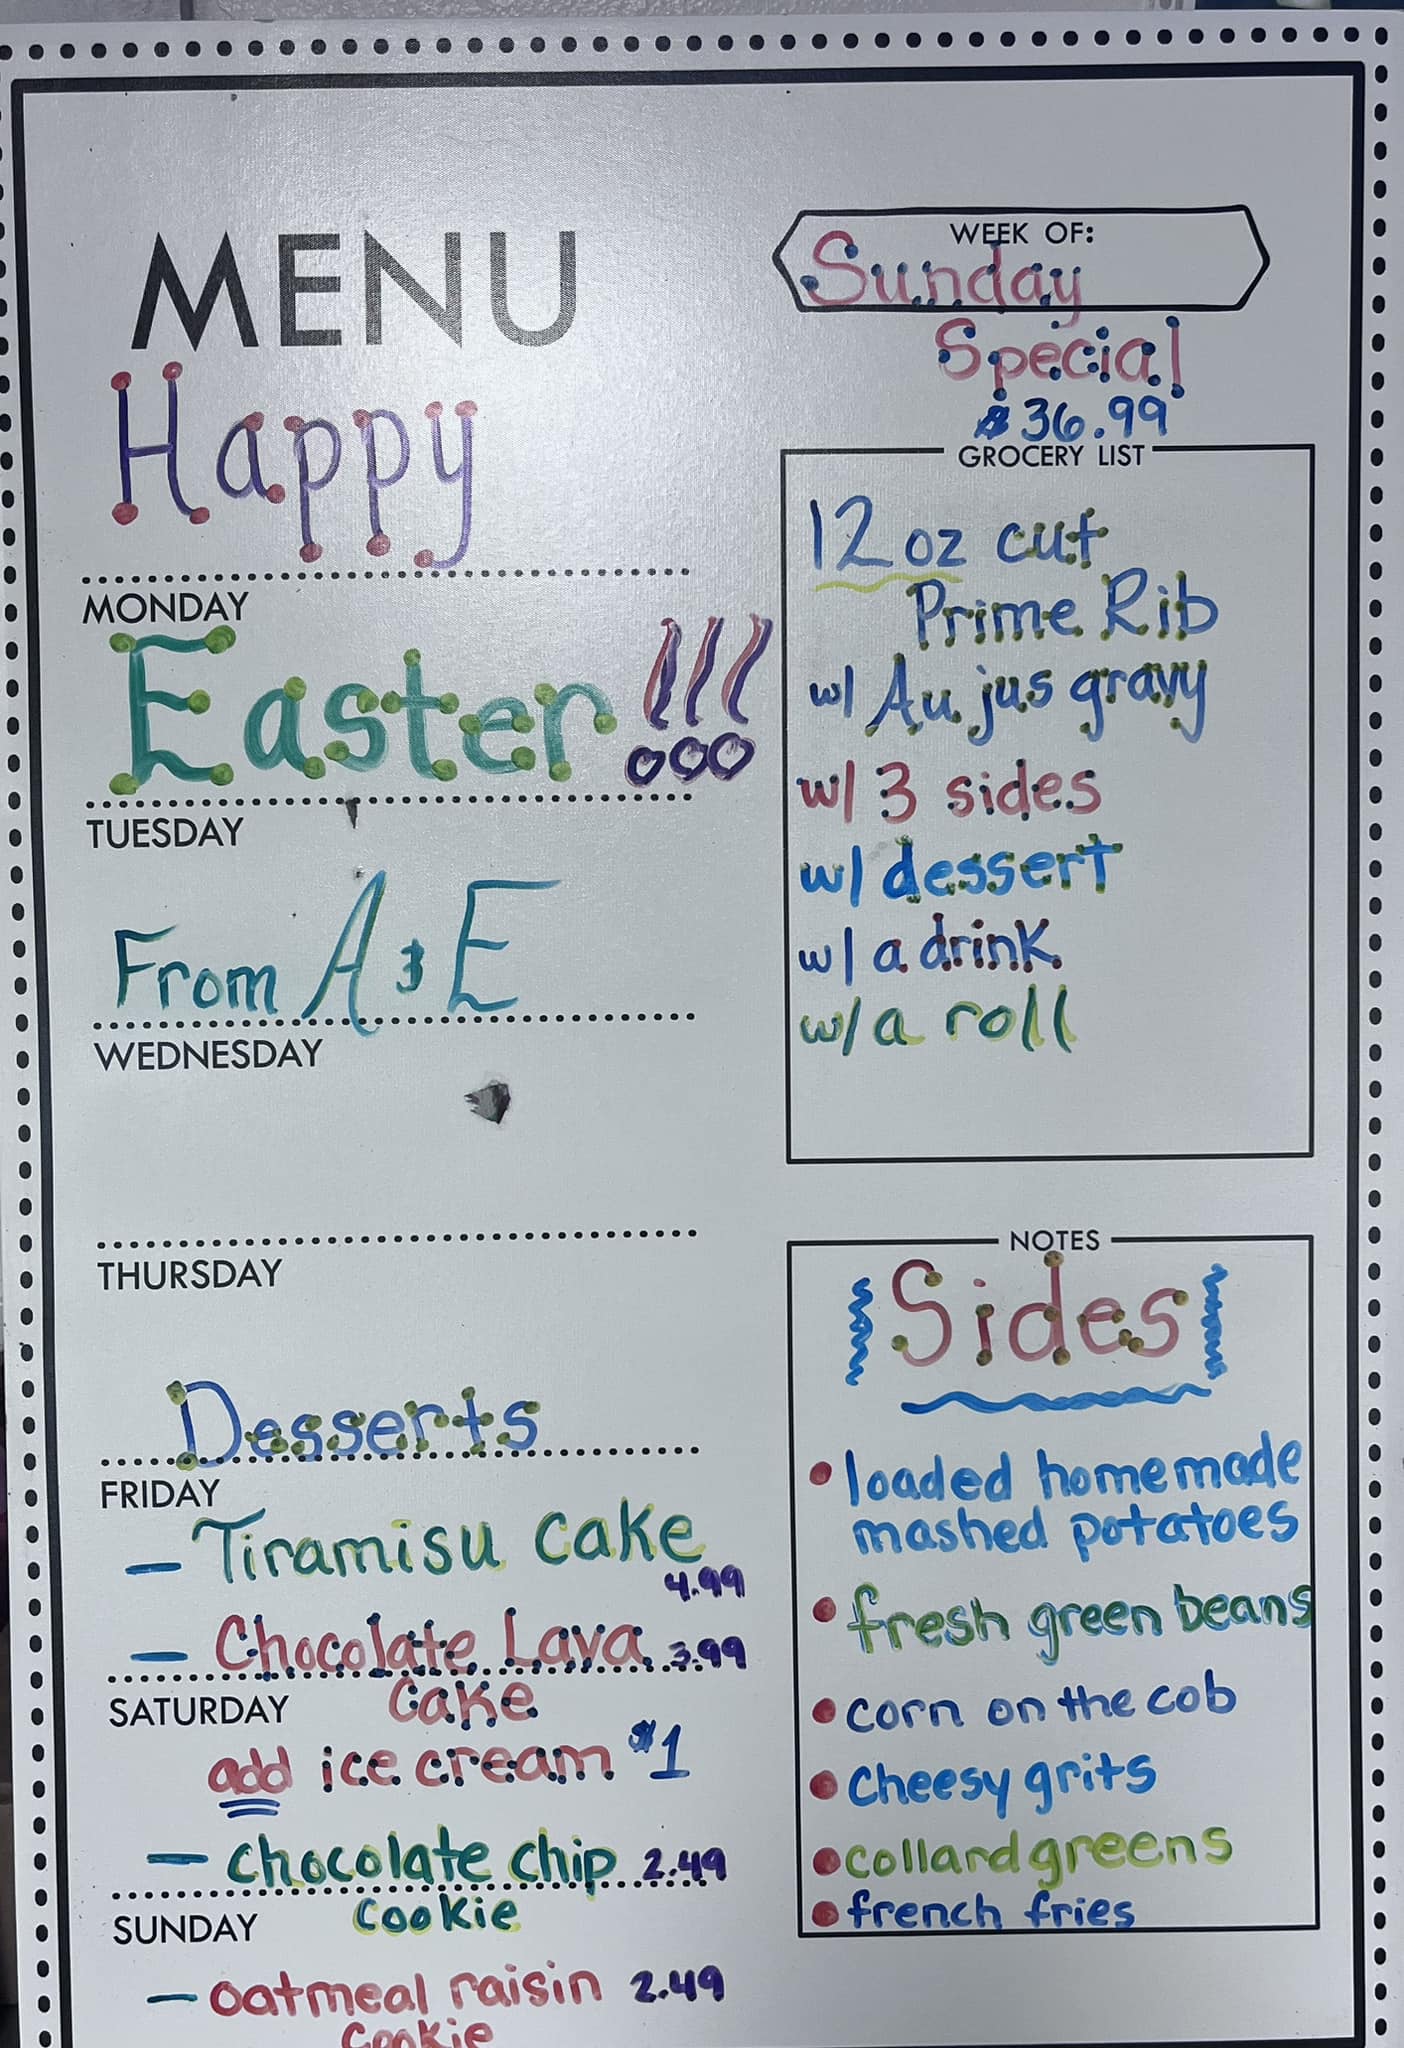 MENU
Happy
MONDAY
Easter!!!
TUESDAY
From A & E
WEDNESDAY
THURSDAY
Desserts
FRIDAY
- Tiramisu cake
4.99
- Chocolate Lava 3.99
SATURDAY cake
add ice cream $1
- chocolate chip 2.49
SUNDAY cookie
- oatmeal raisin 2.49
cookie
WEEK OF:
Sunday
Special
$36.99
GROCERY LIST
12 oz cut
Prime Rib
w/ Au jus gravy
w/ 3 sides
w/ dessert
w/ a drink
w/ a roll
NOTES
Sides
• loaded homemade
mashed potatoes
• fresh green beans
• corn on the cob
• cheesy grits
• collard greens
• french fries